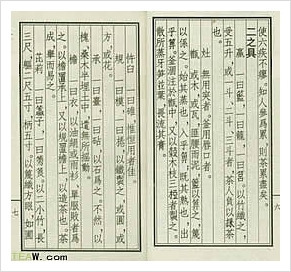 使六疾不瘳。知人參為累，則茶累盡矣。
二之具
籝 一曰籃，一曰籠，一曰筥。以竹織之，
受五升，或一斗、二斗、三斗者，茶人負以採茶
也。
灶 無用突者，釜用唇口者。
甑 或木或瓦，匪腰而泥，籃以箅之，篾
以系之。始其蒸也，入乎箅，既其熟也，出
乎箅。釜涸注於甑中，又以穀木枝三椏者製之，
散所蒸牙筍並葉，畏流其膏。
六
杵臼 一曰碓，惟恒用者佳。
規 一曰模，一曰棬。以鐵製之，或圓，或
方，或花。
承 一曰臺，一曰砧。以石為之。不然，以
槐桑木半埋地中，遣無所搖動。
檐 一曰衣。以油絹或雨衫、單服敗者為
之。以檐置承上，又以規置檐上，以造茶也。茶
成，舉而易之。
芘莉 一曰籝子，一曰篣筤。以二小竹，長
三尺，軀二尺五寸，柄五寸，以篾織方眼，如圃
七
TEAW.com